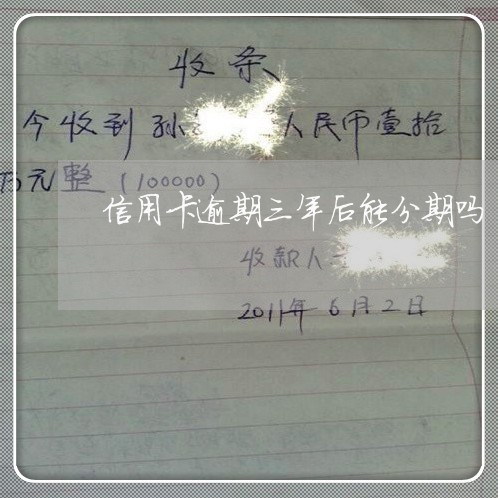 收条
今收到孙人民币壹拾
万元整(100000)
信用卡逾期三年后能分期吗
收款人
2011年6月2日